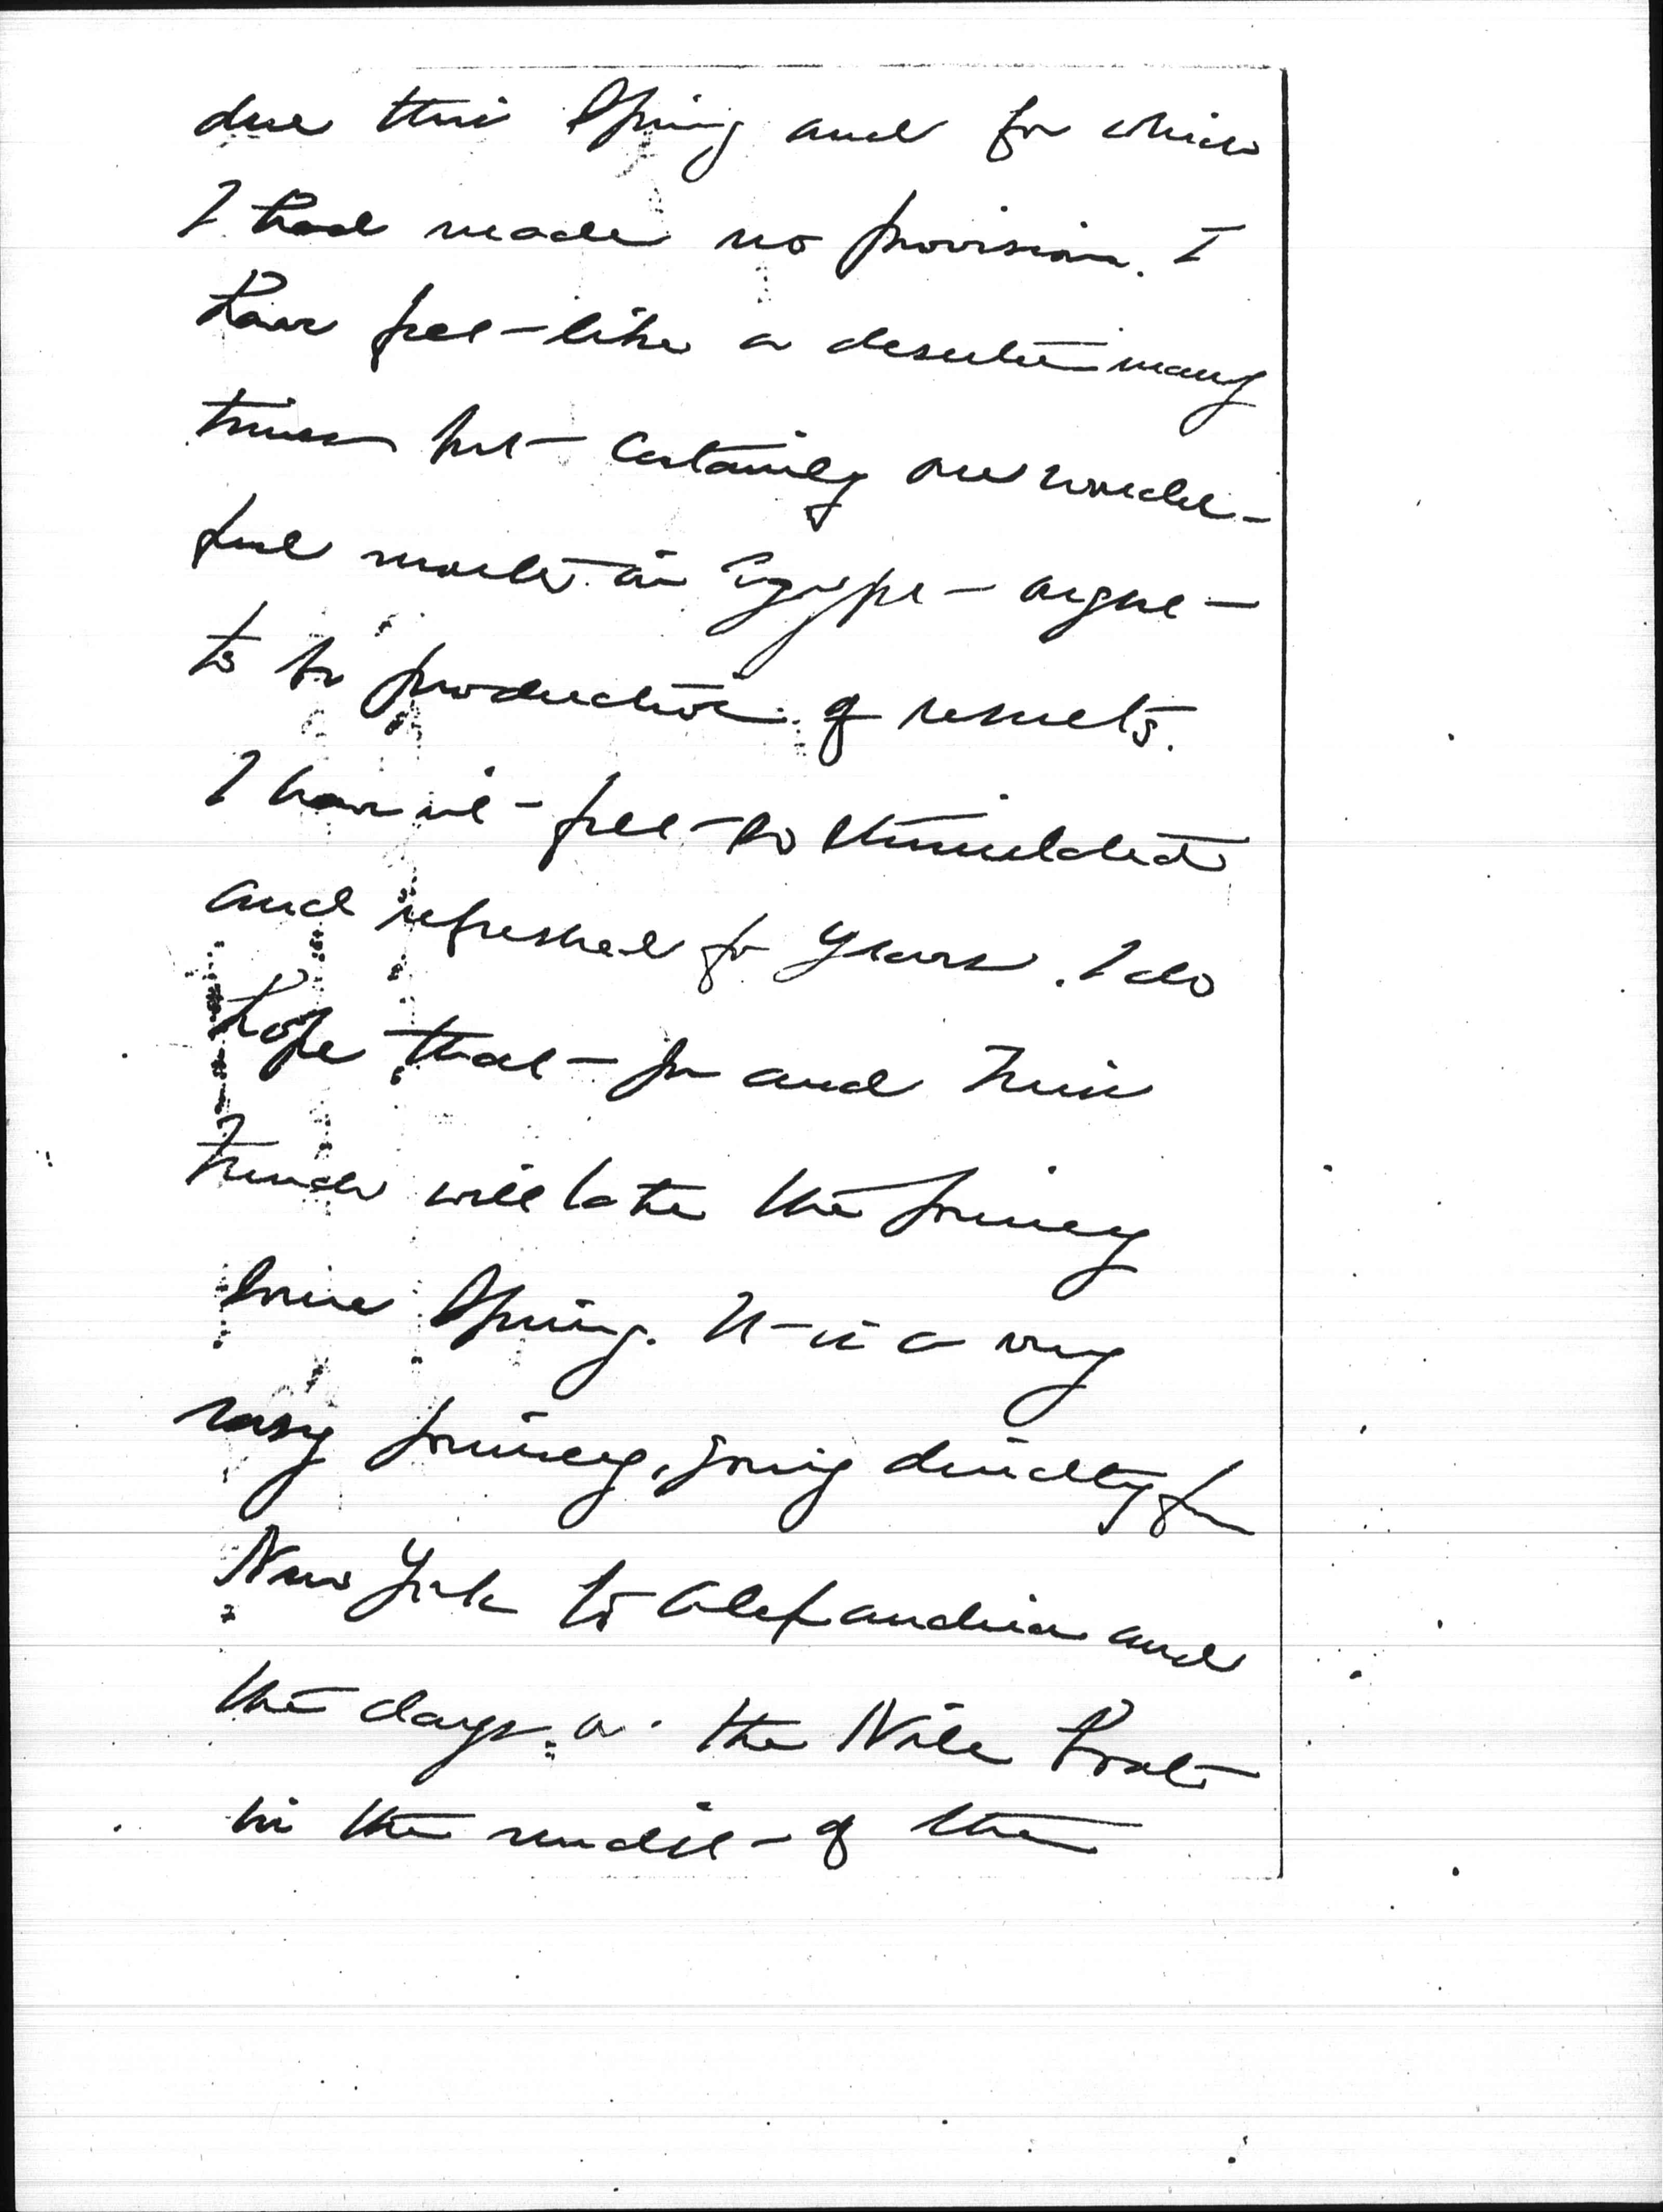 due this Spring and for which
I had made no provision. I
have felt like a deserter many
times but certainly one wonder-
ful month in Egypt ought
to be productive of results.
I have not felt so stimulated
and refreshed for years. I do
hope that you and Miss
will take the journey
some Spring. It is a very
easy journey, going directly from
New York to Alexandria and
the days on the Nile boat
in the midst of the